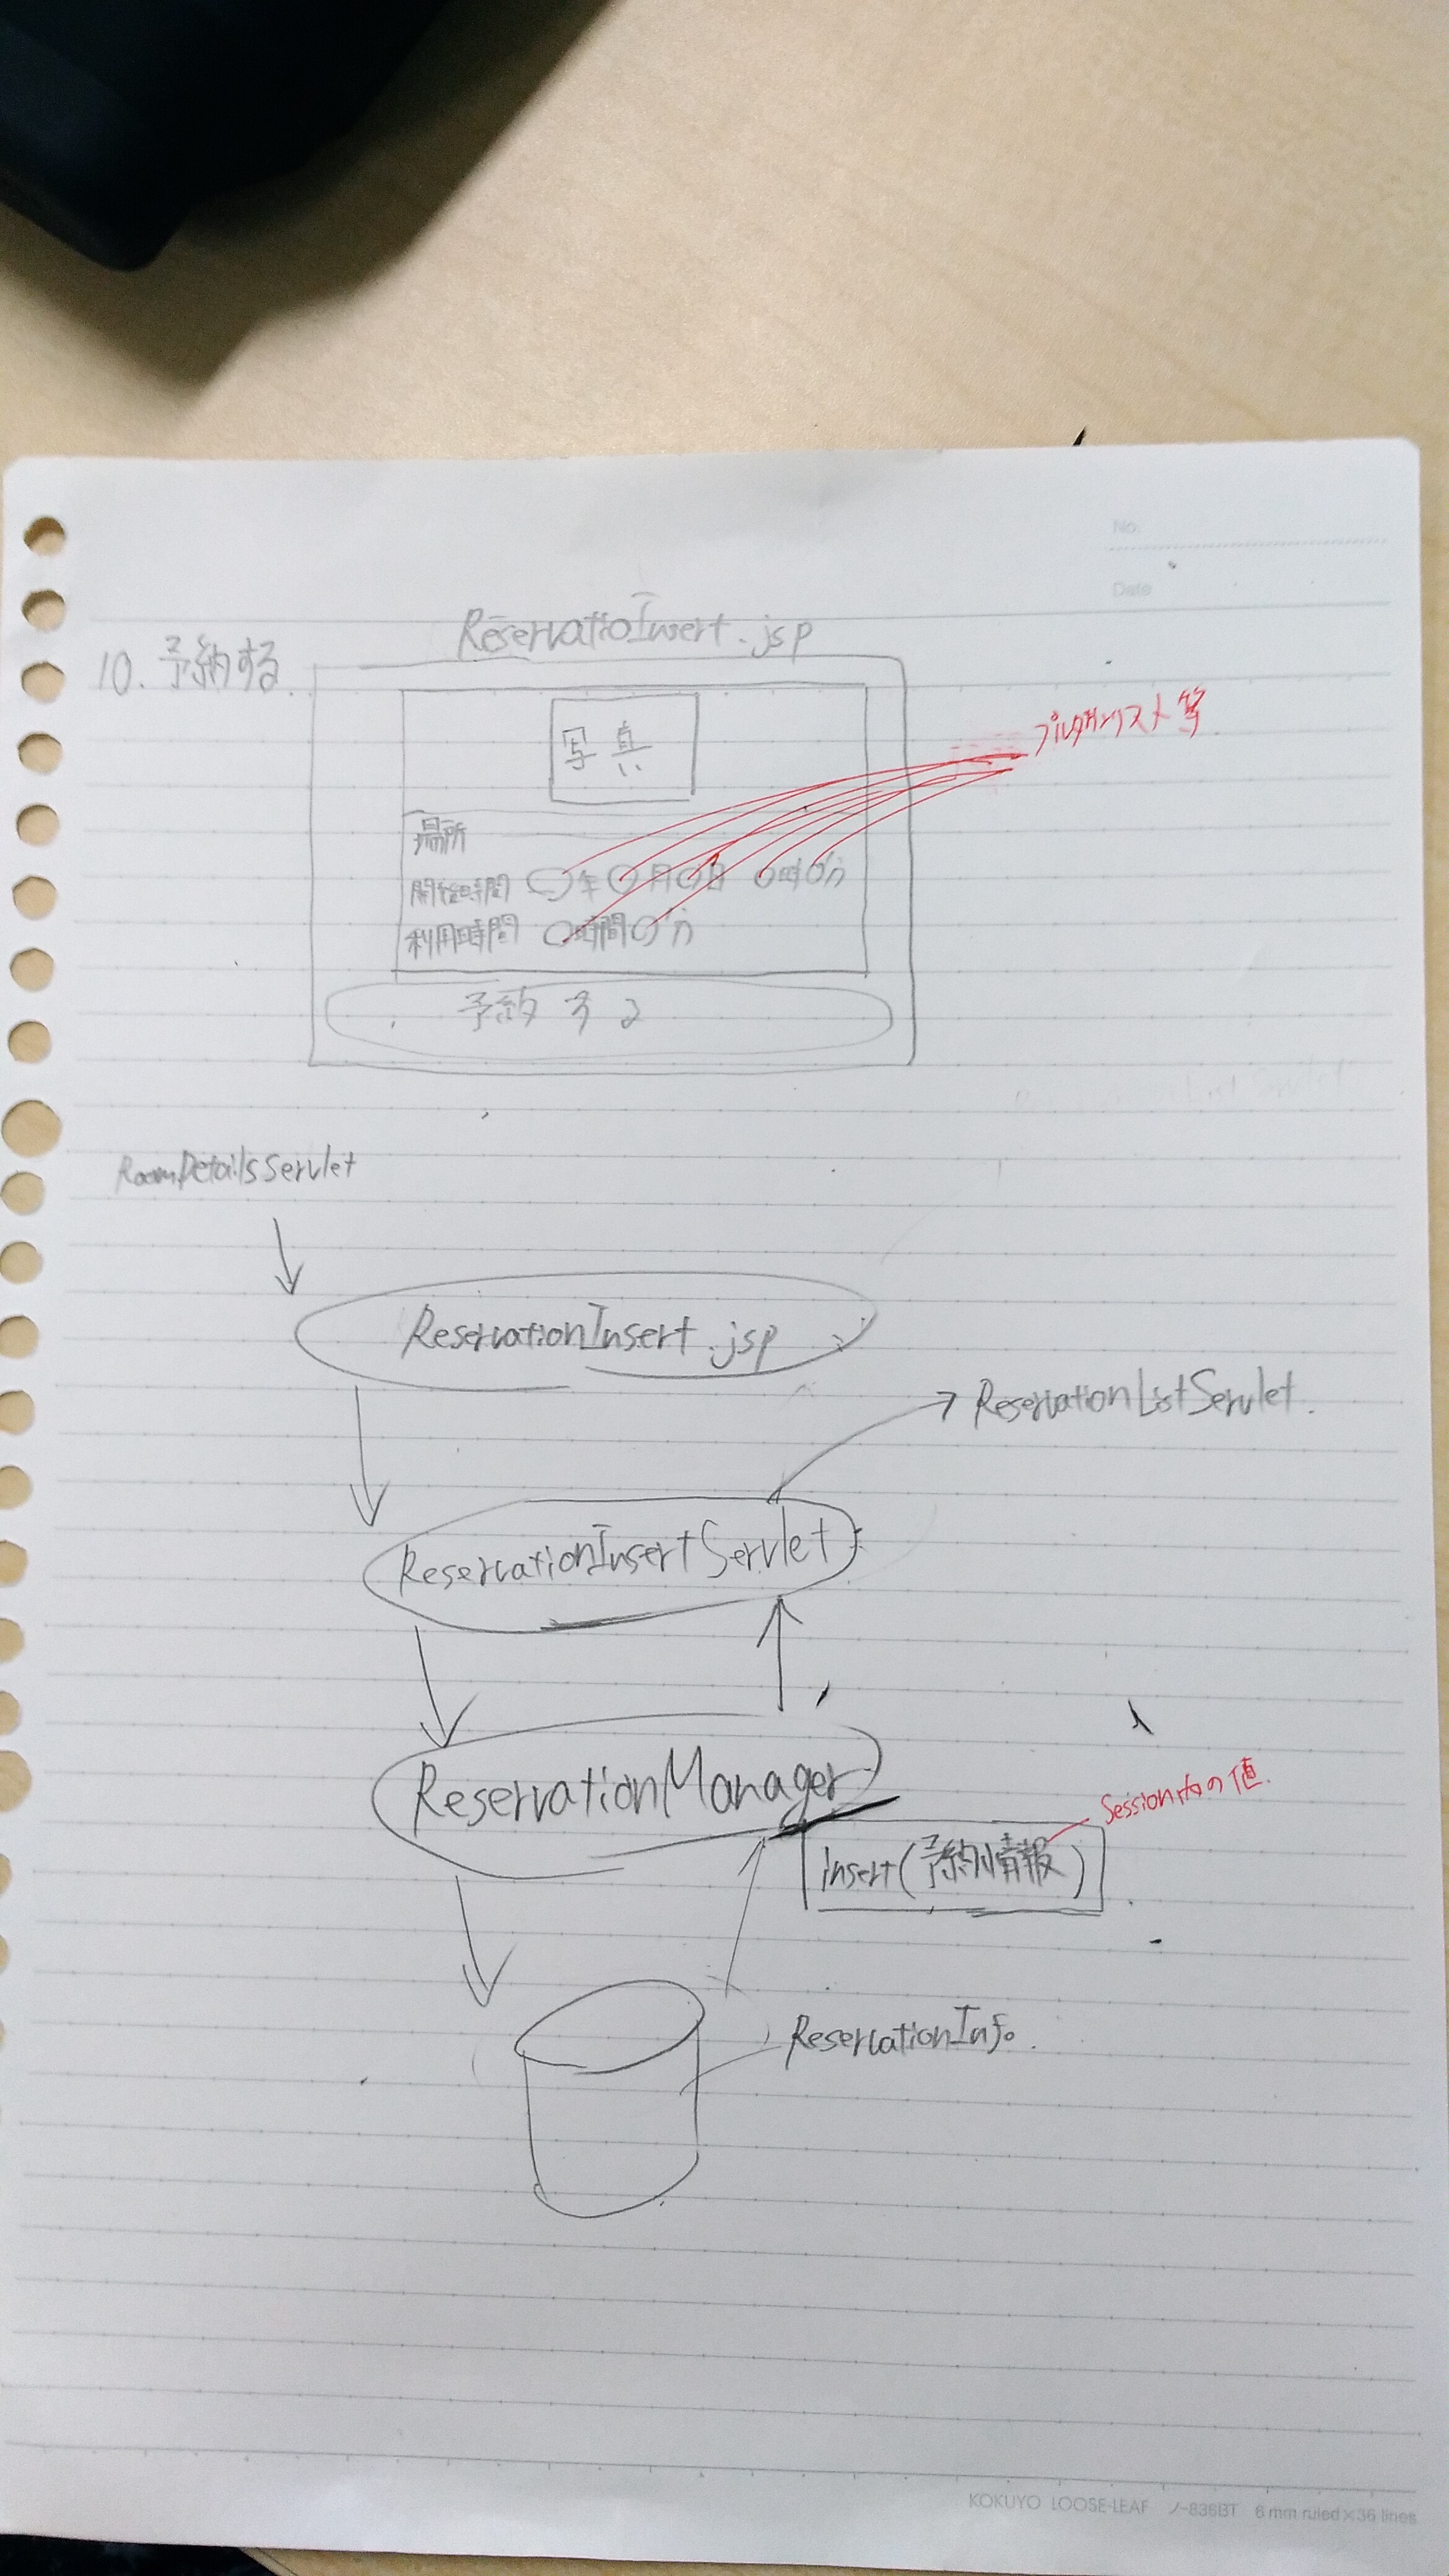 No.
Date
ReservatioInsert.jsp
10. 予約する
写真
プルダウンリスト等
場所
開始時間 〇年〇月〇日 〇時〇分
利用時間 〇時間〇分
予約する
RoomDetailsServlet
ReservationInsert.jsp
ReservationListServlet.
ReservationInsertServlet
ReservationManager
Session内の値.
insert(予約情報)
ReservationInfo.
KOKUYO LOOSE-LEAF ノ-836BT 6 mm ruled×36 lines